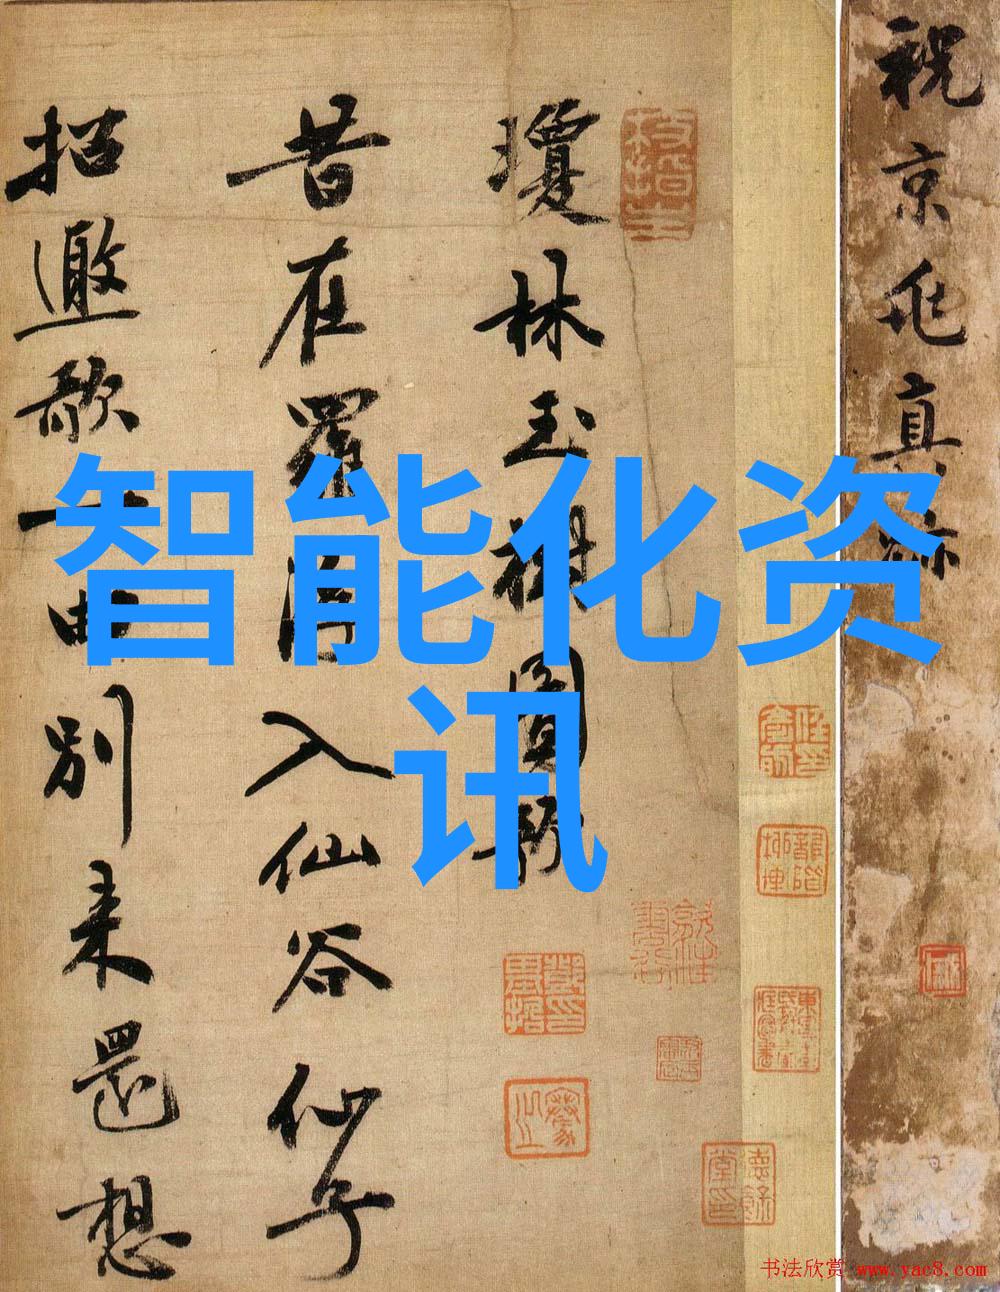 祝京兆真
瓊林玉樹圖
昔在羅浮入仙谷仙子
招邀歌一曲別来還想
智能化资
讯
书法欣赏 www.yac8.com